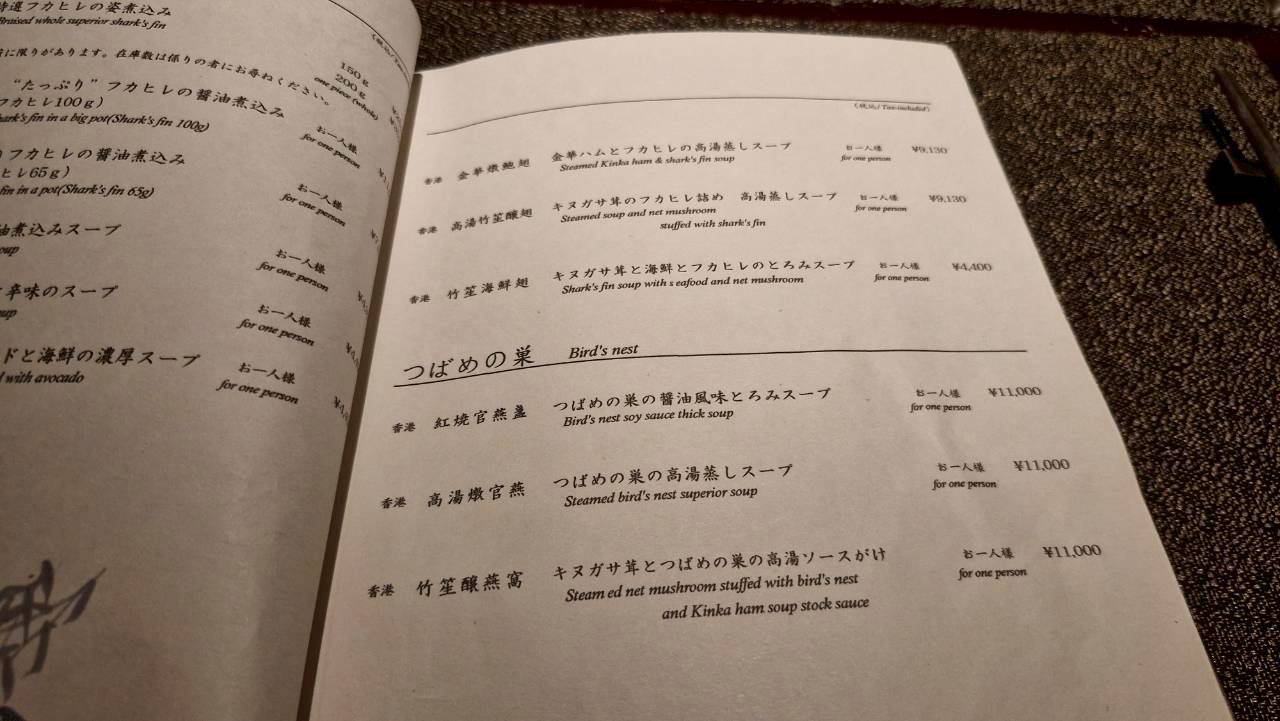 特選フカヒレの姿煮込み
Braised whole superior shark's fin
に限りがあります。在庫数は係りの者にお尋ねください。
150g
200g
one piece (whole)
“たっぷり”フカヒレの醤油煮込み
フカヒレ100g）
shark's fin in a big pot(Shark's fin 100g)
お一人様
for one person
フカヒレの醤油煮込み
ヒレ65g）
fin in a pot(Shark's fin 65g)
お一人様
for one person
油煮込みスープ
soup
お一人様
for one person
辛味のスープ
soup
お一人様
for one person
ドと海鮮の濃厚スープ
with avocado
お一人様
for one person
(税込/Tax-included)
香港 金華燉鮑翅 金華ハムとフカヒレの高湯蒸しスープ お一人様 ¥9,130
Steamed Kinka ham & shark's fin soup for one person
香港 高湯竹笙釀翅 キヌガサ茸のフカヒレ詰め 高湯蒸しスープ お一人様 ¥9,130
Steamed soup and net mushroom for one person
stuffed with shark's fin
香港 竹笙海鮮翅 キヌガサ茸と海鮮とフカヒレのとろみスープ お一人様 ¥4,400
Shark's fin soup with s eafood and net mushroom for one person
つばめの巣 Bird's nest
香港 紅燒官燕盞 つばめの巣の醤油風味とろみスープ お一人様 ¥11,000
Bird's nest soy sauce thick soup for one person
香港 高湯燉官燕 つばめの巣の高湯蒸しスープ お一人様 ¥11,000
Steamed bird's nest superior soup for one person
香港 竹笙釀燕窩 キヌガサ茸とつばめの巣の高湯ソースがけ お一人様 ¥11,000
Steam ed net mushroom stuffed with bird's nest for one person
and Kinka ham soup stock sauce